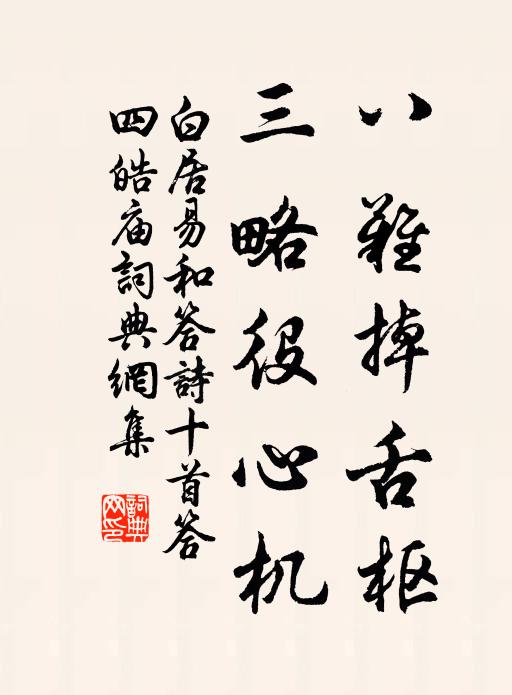 八難掉舌枢
三略役心机
白居易和答詩十首答
四皓庙詞典網集
詞典
网印